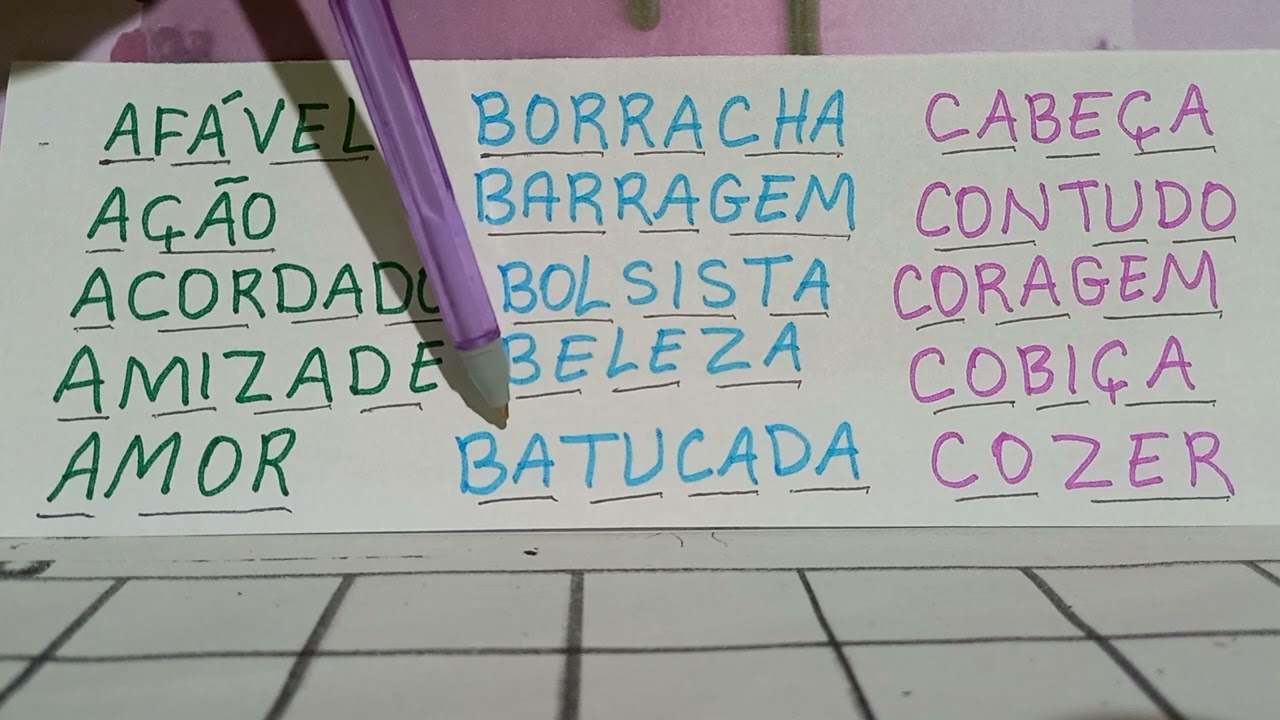 AFÁVEL BORRACHA CABEÇA
AÇÃO BARRAGEM CONTUDO
ACORDADO BOLSISTA CORAGEM
AMIZADE BELEZA COBIÇA
AMOR BATUCADA COZER